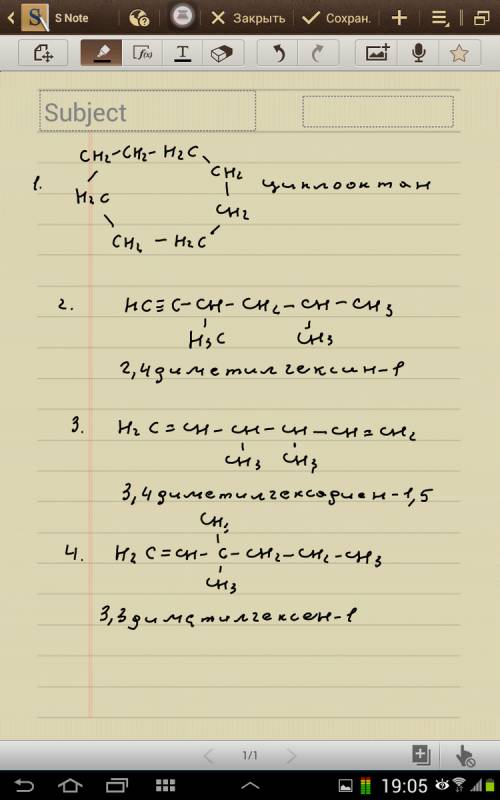 S Note
Закрыть
Сохран.
f(x)
T
Subject
1. CH2-CH2-H2C
CH2
H2C
CH2
циклооктан
CH2 - H2C
2. HC≡C-CH-CH2-CH-CH3
H3C CH3
2,4диметилгексин-1
3. H2C=CH-CH-CH-CH=CH2
CH3 CH3
3,4диметилгексадиен-1,5
CH3
4. H2C=CH-C-CH2-CH2-CH3
CH3
3,3диметилгексен-1
1/1
19:05